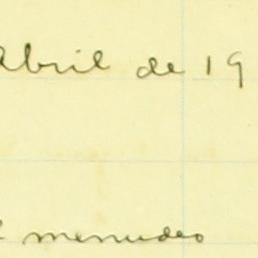 Abril de 19
menudeo